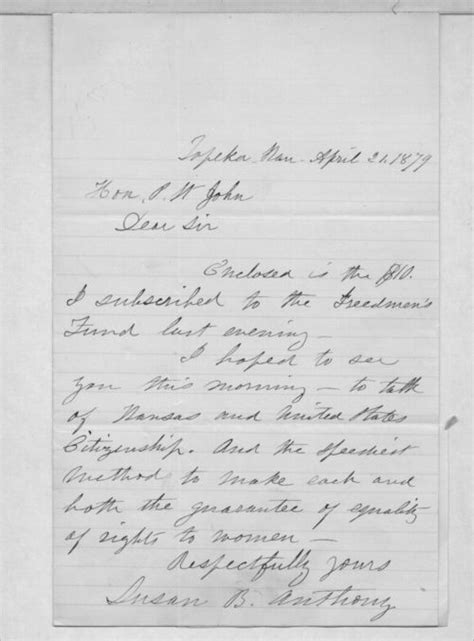 Topeka Kan. April 21. 1879
Hon. P. St John
Dear Sir
Enclosed is the $10.
I subscribed to the Freedmen's
Fund last evening —
I hoped to see
you this morning — to talk
of Kansas and United States
Citizenship. And the speediest
method to make each and
both the guarantee of equality
of rights to women —
Respectfully yours
Susan B. Anthony